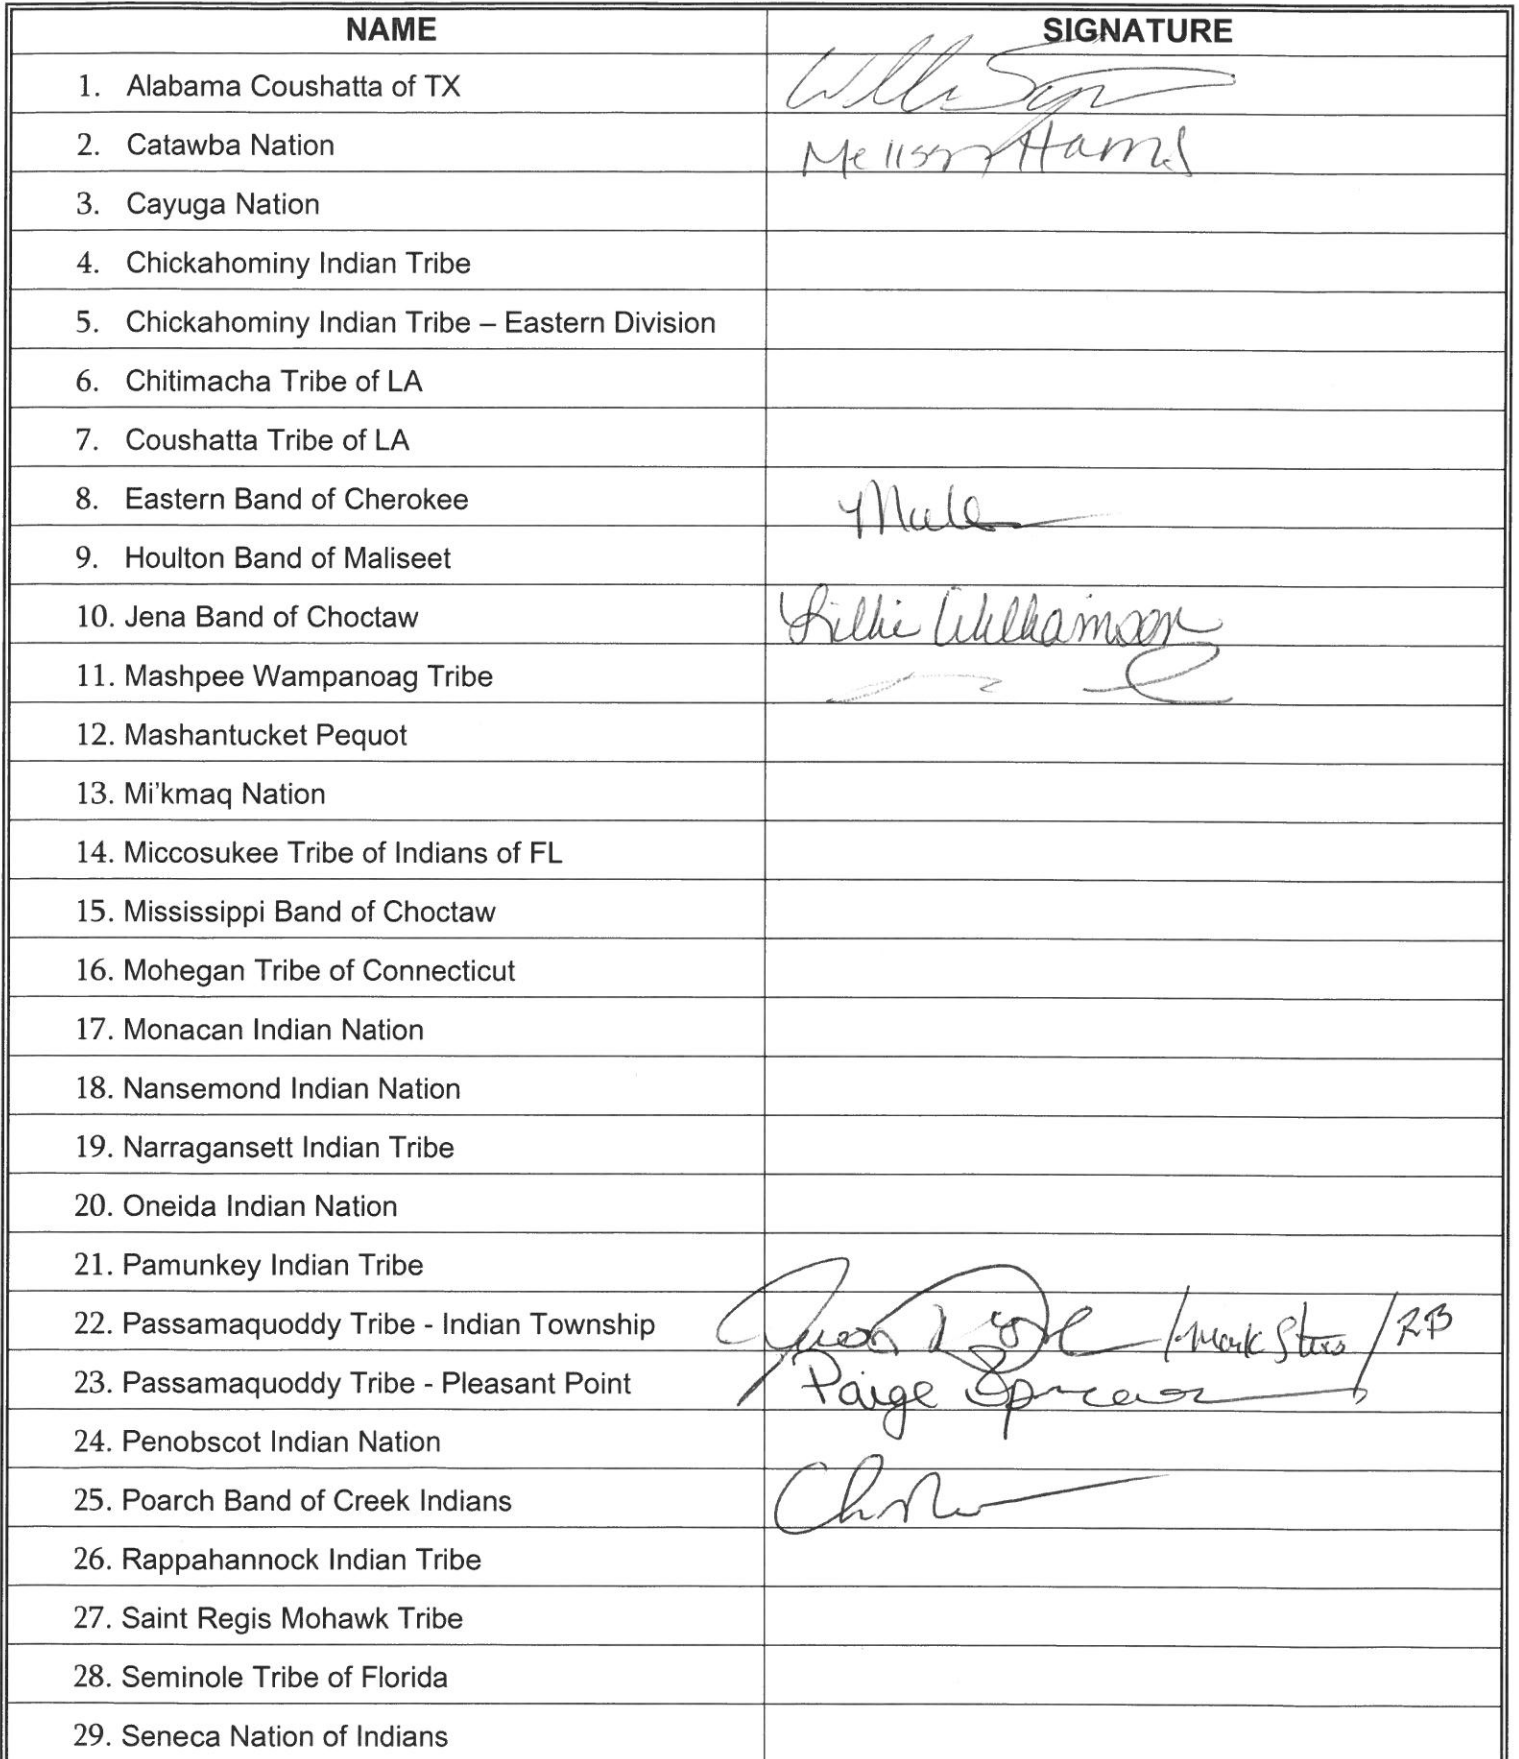 NAME SIGNATURE
1. Alabama Coushatta of TX
2. Catawba Nation Melissa Harris
3. Cayuga Nation
4. Chickahominy Indian Tribe
5. Chickahominy Indian Tribe – Eastern Division
6. Chitimacha Tribe of LA
7. Coushatta Tribe of LA
8. Eastern Band of Cherokee
9. Houlton Band of Maliseet
10. Jena Band of Choctaw Lillie Williamson
11. Mashpee Wampanoag Tribe
12. Mashantucket Pequot
13. Mi'kmaq Nation
14. Miccosukee Tribe of Indians of FL
15. Mississippi Band of Choctaw
16. Mohegan Tribe of Connecticut
17. Monacan Indian Nation
18. Nansemond Indian Nation
19. Narragansett Indian Tribe
20. Oneida Indian Nation
21. Pamunkey Indian Tribe
22. Passamaquoddy Tribe - Indian Township / Mark / RB
23. Passamaquoddy Tribe - Pleasant Point Paige
24. Penobscot Indian Nation
25. Poarch Band of Creek Indians
26. Rappahannock Indian Tribe
27. Saint Regis Mohawk Tribe
28. Seminole Tribe of Florida
29. Seneca Nation of Indians